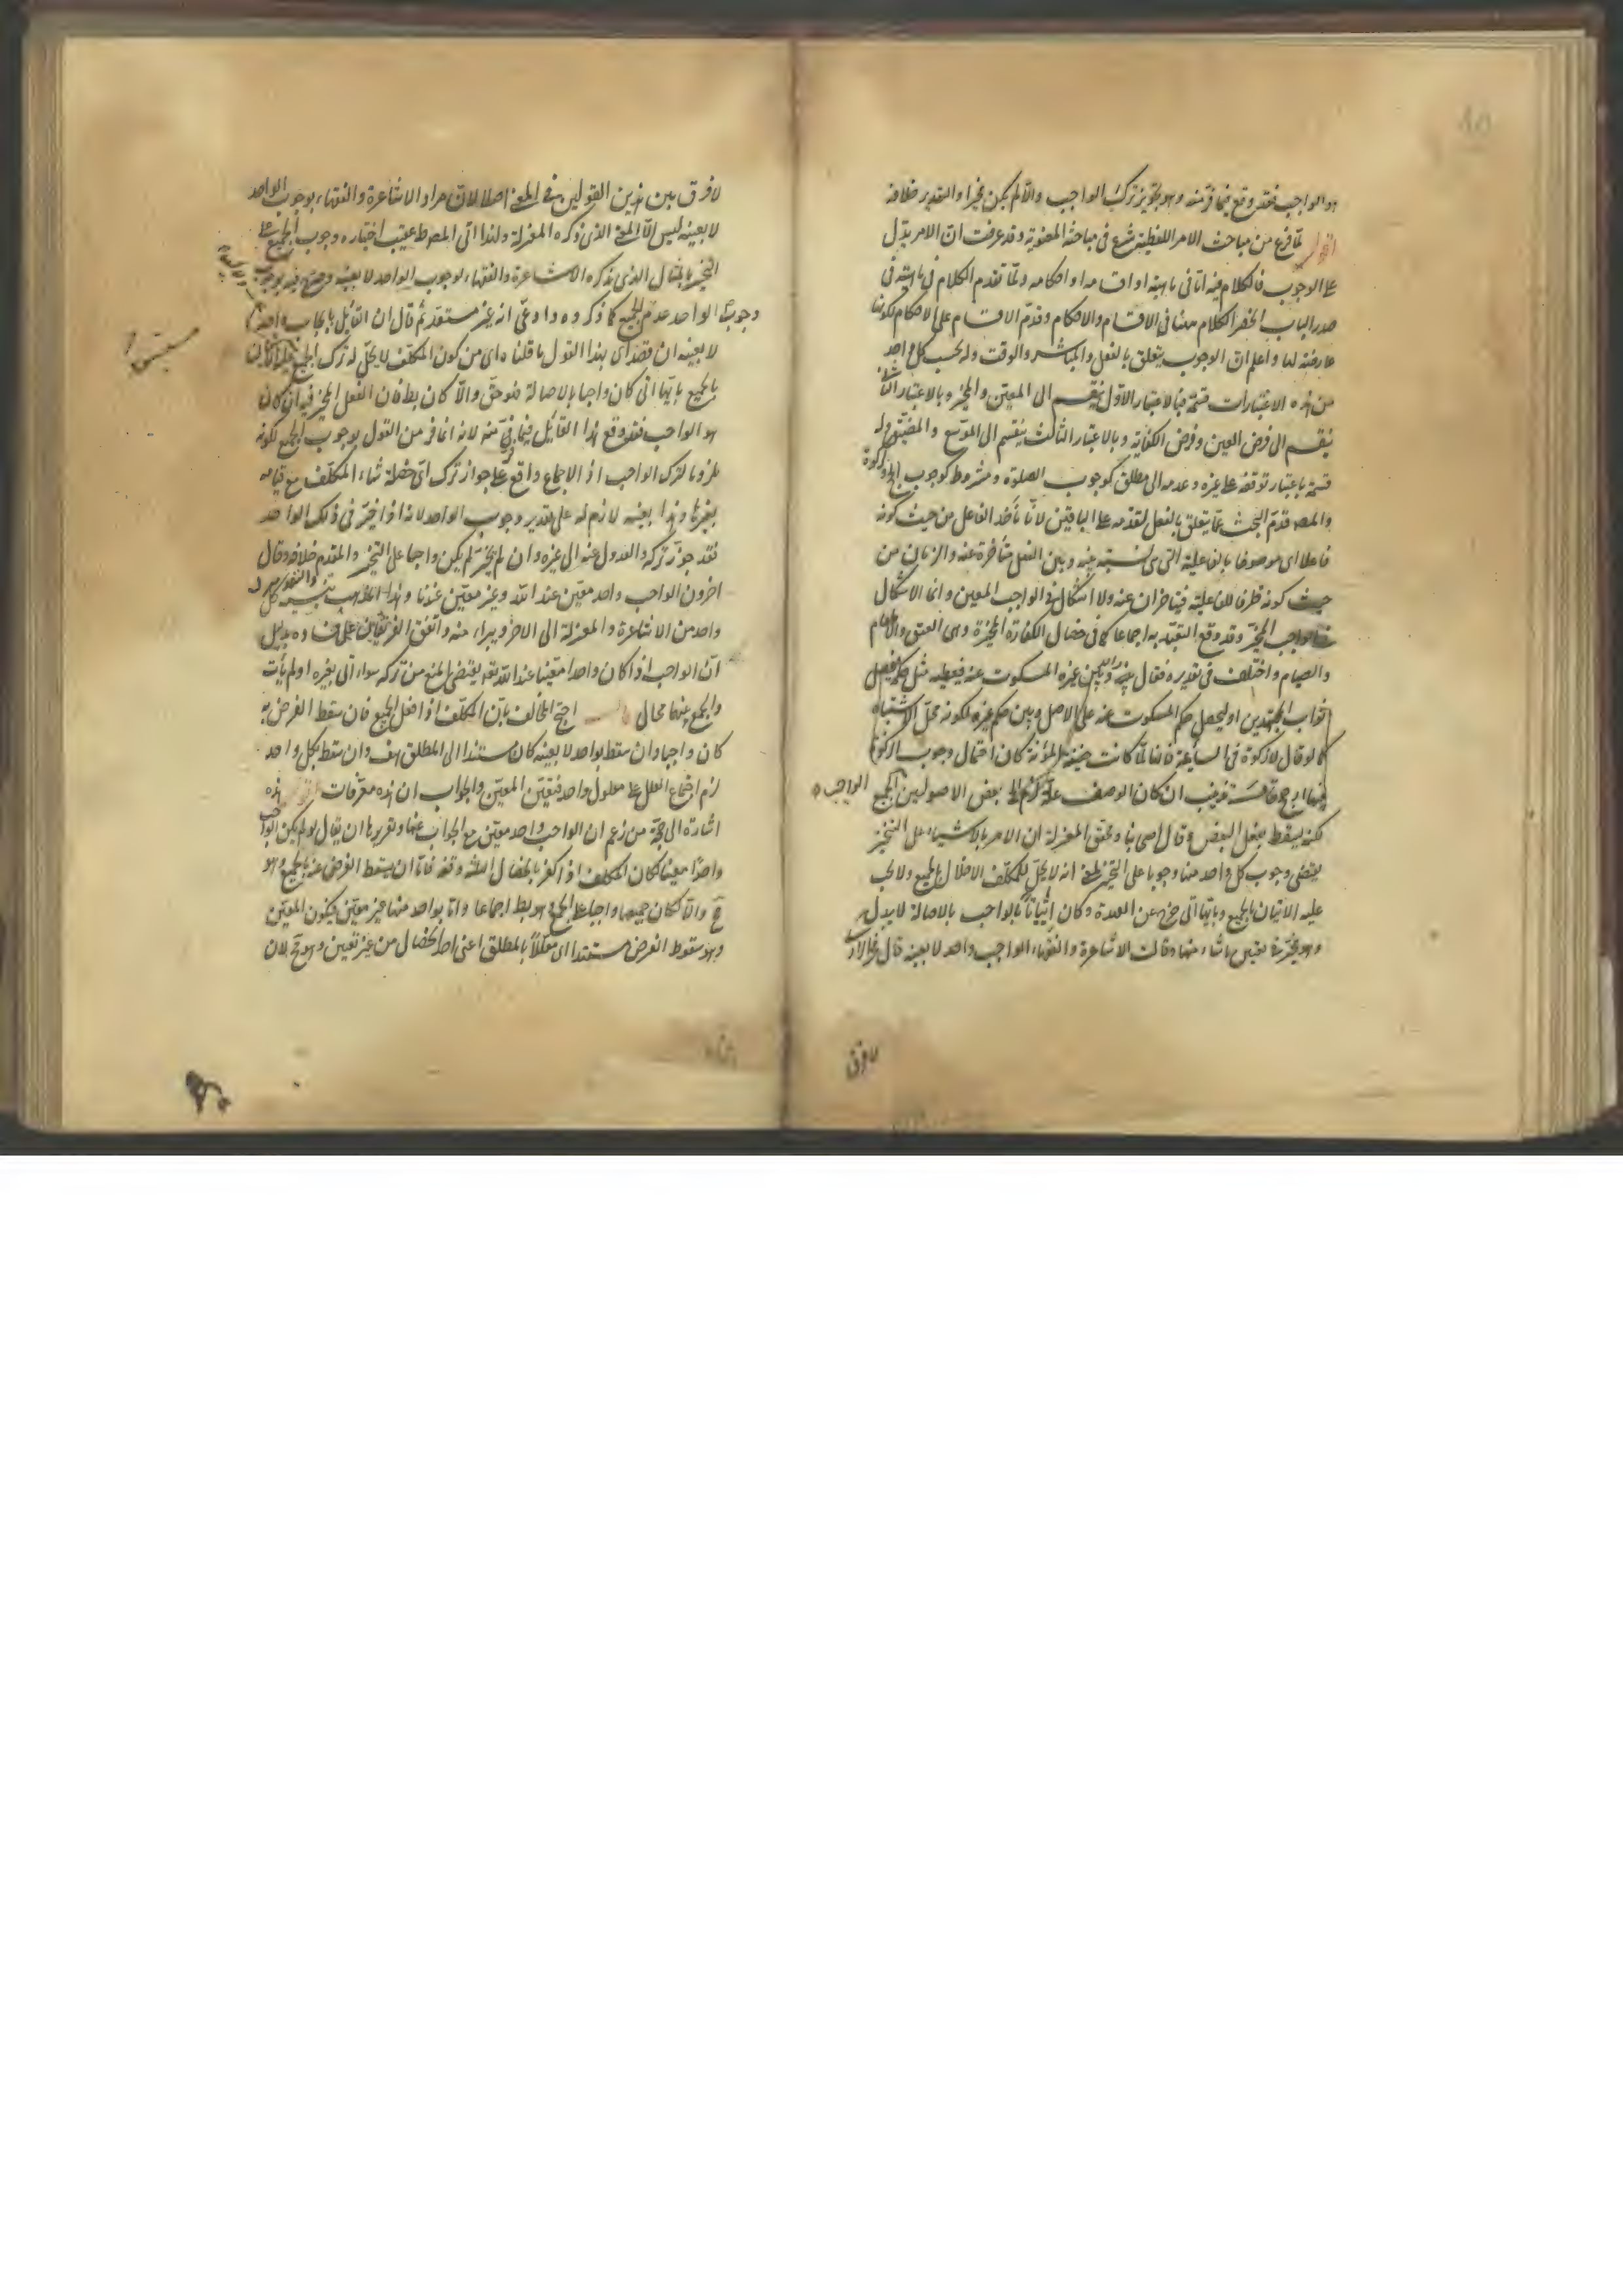 هو الواجب فقد وقع فيما فر منه وهو تجويز ترك الواجب والا لم يكن مخيرا والتقدير خلافه
اقول لما فرغ من مباحث الامر اللفظية شرع في مباحثه المعنوية وقد عرفت ان الامر يدل
على الوجوب فالكلام فيه اما في ماهيته او اقسامه او احكامه ولما تقدم الكلام في ماهيته في
صدر الباب انحصر الكلام ههنا في الاقسام والاحكام وقدم الاقسام على الاحكام لكونها
عارضة لها واعلم ان الوجوب يتعلق بالفعل والمباشر والوقت وله بحسب كل واحد
من هذه الاعتبارات قسمة فبالاعتبار الاول ينقسم الى المعين والمخير وبالاعتبار الثاني
ينقسم الى فرض العين وفرض الكفاية وبالاعتبار الثالث ينقسم الى الموسع والمضيق وله
قسمة باعتبار توقفه على غيره وعدمه الى مطلق كوجوب الصلوة ومشروط كوجوب الزكوة
والمصـ قدم البحث عما يتعلق بالفعل لتقدمه على الباقين لانا نأخذ الفاعل من حيث كونه
فاعلا اى موصوفا بالفاعلية التي هي نسبته بينه وبين الفعل متأخرة عنه والزمان من
حيث كونه ظرفا للفاعلية فيتاخران عنه ولا اشكال في الواجب المعين وانما الاشكال
في الواجب المخير وقد وقع التعبد به اجماعا كما في خصال الكفارة المخيرة وهي العتق والاطعام
والصيام واختلف في تقديره فقال غيره المسكوت عنه فيعطيه مثل حكمه فيحصل
ثواب المجتهدين او ليحصل حكم المسكوت عنه على الاصل وبين حكم غيره لكونه محل الاشتباه
كما لو قال لا زكوة في السايمة فانها لما كانت خفيفة المؤنة كان احتمال وجوب الزكوة
فيها ارجح ان كان الوصف علة بعض الاصوليين الجميع الواجب
لكنه يسقط بفعل البعض وقال اصحابنا ومحققو المعتزلة ان الامر بالاشياء على التخيير
يقتضي وجوب كل واحد منها وجوبا على التخيير بمعنى انه لا يحل للمكلف الاخلال بالجميع ولا يجب
عليه الاتيان بالجميع وبايها اتى خرج عن العهدة وكان اتيانا بالواجب بالاصالة لا ببدل
وهو مخير في تعيين ما شاء منها وقالت الاشاعرة والفقهاء الواجب واحد لا بعينه قال
لا فرق
لا فرق بين هذين القولين في المعنى اصلا لان مراد الاشاعرة والفقهاء بوجوب الواحد
لا بعينه ليس الا المعنى الذي ذكره المعتزلة ولهذا اتى المصـ ط عقيب اختياره وجوب الجميع على
التخيير بالمثال الذي يذكره الاشاعرة والفقهاء لوجوب الواحد لا بعينه
وجوب الواحد عدم الجميع كما ذكروه وادعى انه غير مستقيم قال ان القايل بايجاب واحد
لا بعينه ان قصد بهذا القول ما قلناه اى من كون المكلف لا يحل له ترك الجميع
بالجميع بايها اتى كان واجبا بالاصالة فهو حق والا كان بط فان الفعل المخير فيه ان كان
هو الواحب فقد وقع هذا القائل فيما فر منه لانه انما فر من القول بوجوب الجميع لكونه
ملزوما لترك الواجب اذ الاجماع واقع على جواز ترك اى خصلة شاء المكلف مع قيامه
بغيرها وهذا بعينه لازم له على تقدير وجوب الواحد لانه اذا خير في ذلك الواحد
فقد جوز تركه والعدول عنه الى غيره وان لم يخير لم يكن واجبا على التخيير والمقدم خلافه وقال
اخرون الواجب واحد معين عند الله وغير معين عندنا وهذا المذهب ينسبه كل
واحد من الاشاعرة والمعتزلة الى الاخر ويبراء منه واتفق الفريقان على فساده بدليل
ان الواجب اذا كان واحدا معينا عند الله تعـ يقتضي المنع من تركه سواء اتى بغيره او لم يأت
والجمع بينهما محال احتج المخالف بان المكلف اذا فعل الجميع فان سقط الفرض به
كان واجبا وان سقط بواحد لا بعينه كان مستندا الى المطلق هف وان سقط بكل واحد
لزم اجتماع العلل على معلول واحد فتعين المعين والجواب ان هذه معرفات اقول هذه
اشارة الى حجة من زعم ان الواجب واحد معين مع الجواب عنها وتقريرها ان يقال لو لم يكن الواجب
واحدا معينا لكان المكلف اذا كفر بالخصال الثلث دفعة فاما ان يسقط الفرض عنه بالجميع وهو
مح والا لكان جميعها واجبا على الجمع وهو بط اجماعا واما بواحد منها غير معين فيكون المعين
وهو سقوط الفرض مستندا اى معللا بالمطلق اعنى احد الخصال من غير تعيين وهو مح لان